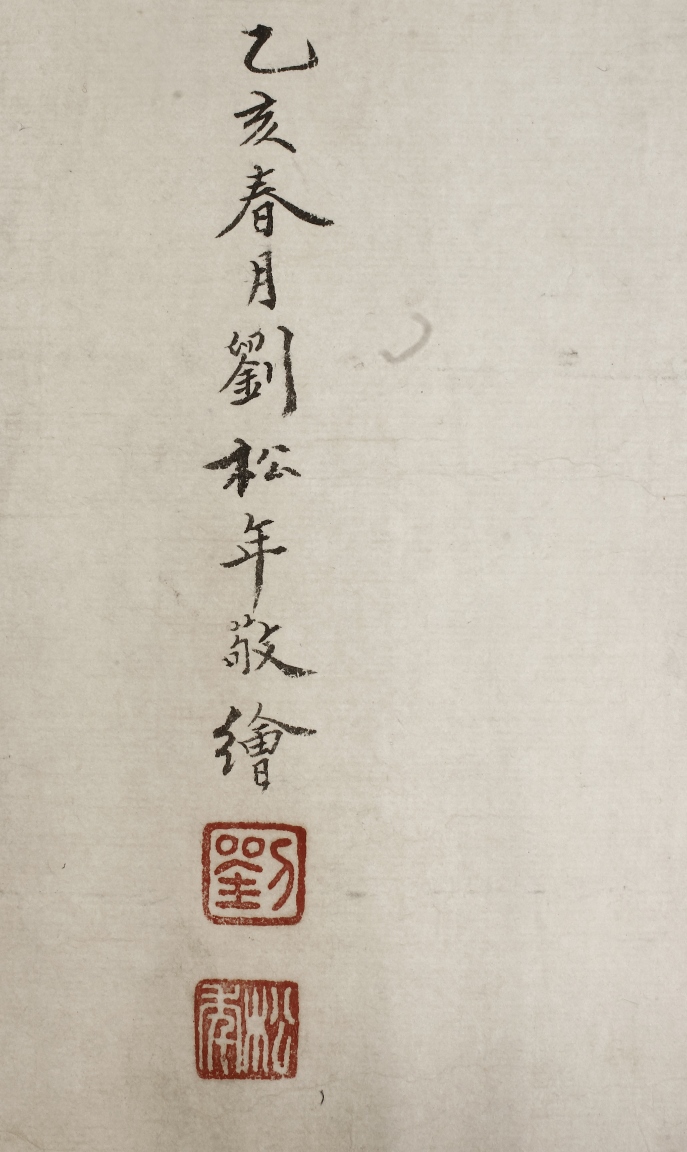 乙亥春月劉松年敬繪
劉
松年